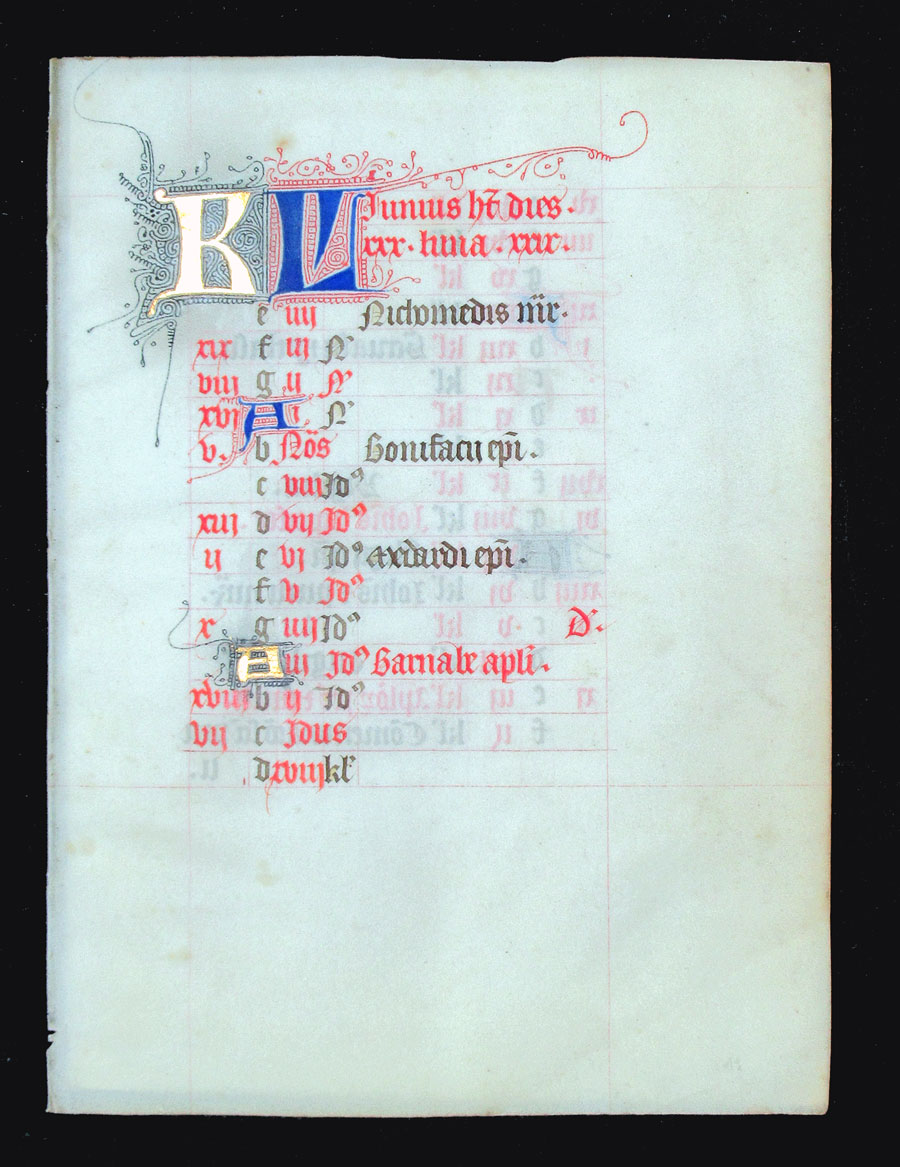 KL Junius ht dies.
xxx. luna. xxix.
e iiij Nichomedis mr.
xix f iij N
viij g ij N
xvj A i N
v. b Nos Bonifacij epi.
c viij Id
xiij d vij Id
ij e vj Id Medardi epi.
f v Id
x g iiij Id D.
A iij Id Barnabe apli.
xviij b ij Id
vij c Idus
d xviij kl